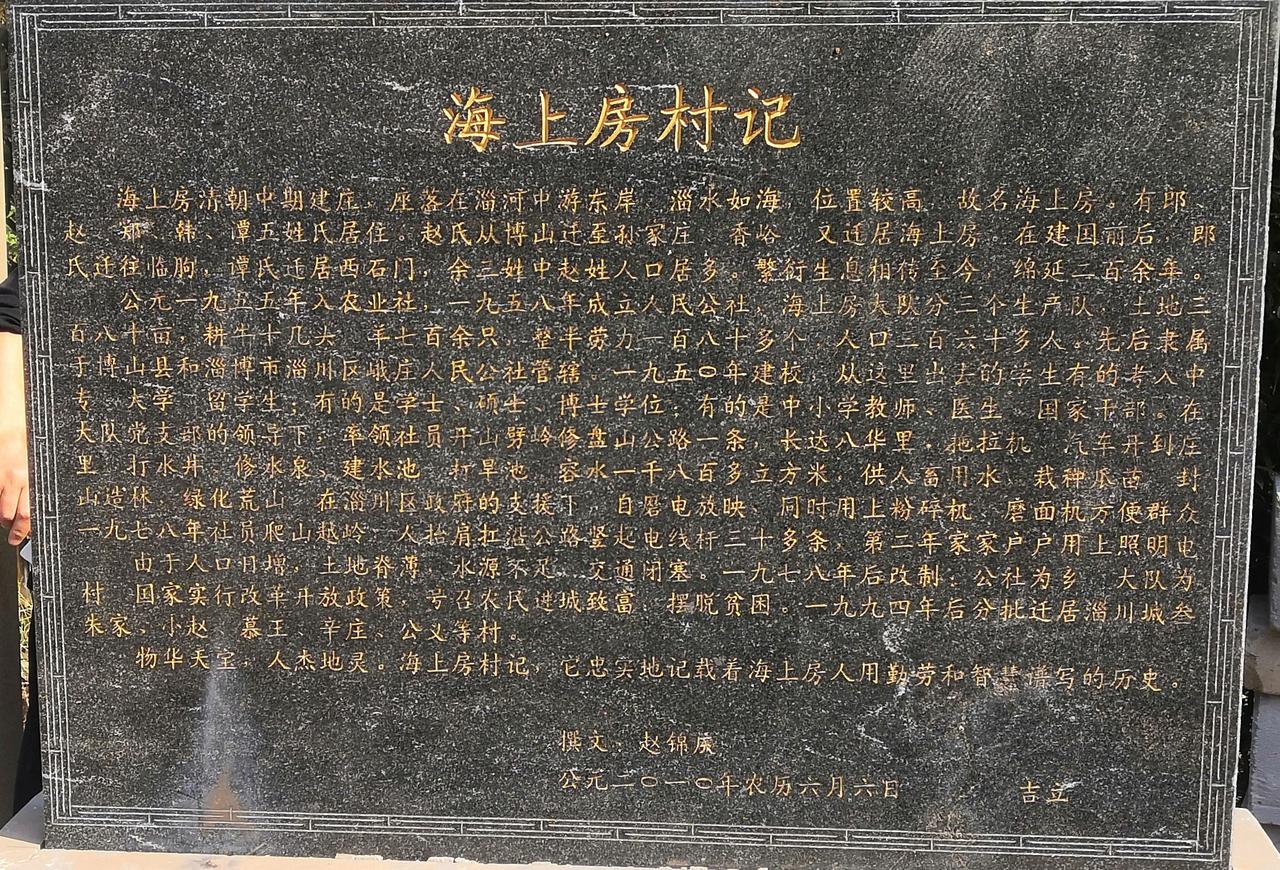 海上房村记
海上房清朝中期建庄，座落在淄河中游东岸，淄水如海，位置较高，故名海上房。有郎、
赵、郑、韩、谭五姓氏居住。赵氏从博山迁至孙家庄、香峪，又迁居海上房，在建国前后，郎
氏迁往临朐，谭氏迁居西石门，余三姓中赵姓人口居多。繁衍生息相传至今，绵延二百余年。
公元一九五五年入农业社，一九五八年成立人民公社，海上房大队分二个生产队，土地三
百八十亩，耕牛十几头，羊七百余只，整半劳力一百八十多个，人口二百六十多人。先后隶属
于博山县和淄博市淄川区峨庄人民公社管辖，一九五〇年建校，从这里出去的学生有的考入中
专、大学、留学生；有的是学士、硕士、博士学位；有的是中小学教师、医生、国家干部。在
大队党支部的领导下，率领社员开山劈岭修盘山公路一条，长达八华里，拖拉机、汽车开到庄
里，打水井、修水泉、建水池、打旱池，容水一千八百多立方米，供人畜用水，栽种瓜苗，封
山造林，绿化荒山，在淄川区政府的支援下，自磨电放映，同时用上粉碎机、磨面机方便群众
一九七八年社员爬山越岭，人抬肩扛沿公路竖起电线杆三十多条，第二年家家户户用上照明电
由于人口日增，土地脊薄，水源不足，交通闭塞。一九七八年后改制：公社为乡，大队为
村，国家实行改革开放政策，号召农民进城致富，摆脱贫困。一九九四年后分批迁居淄川城叁
朱家、小赵、慕王、辛庄、公义等村。
物华天宝，人杰地灵。海上房村记，它忠实地记载着海上房人用勤劳和智慧谱写的历史。
撰文：赵锦庚
公元二〇一〇年农历六月六日 吉立